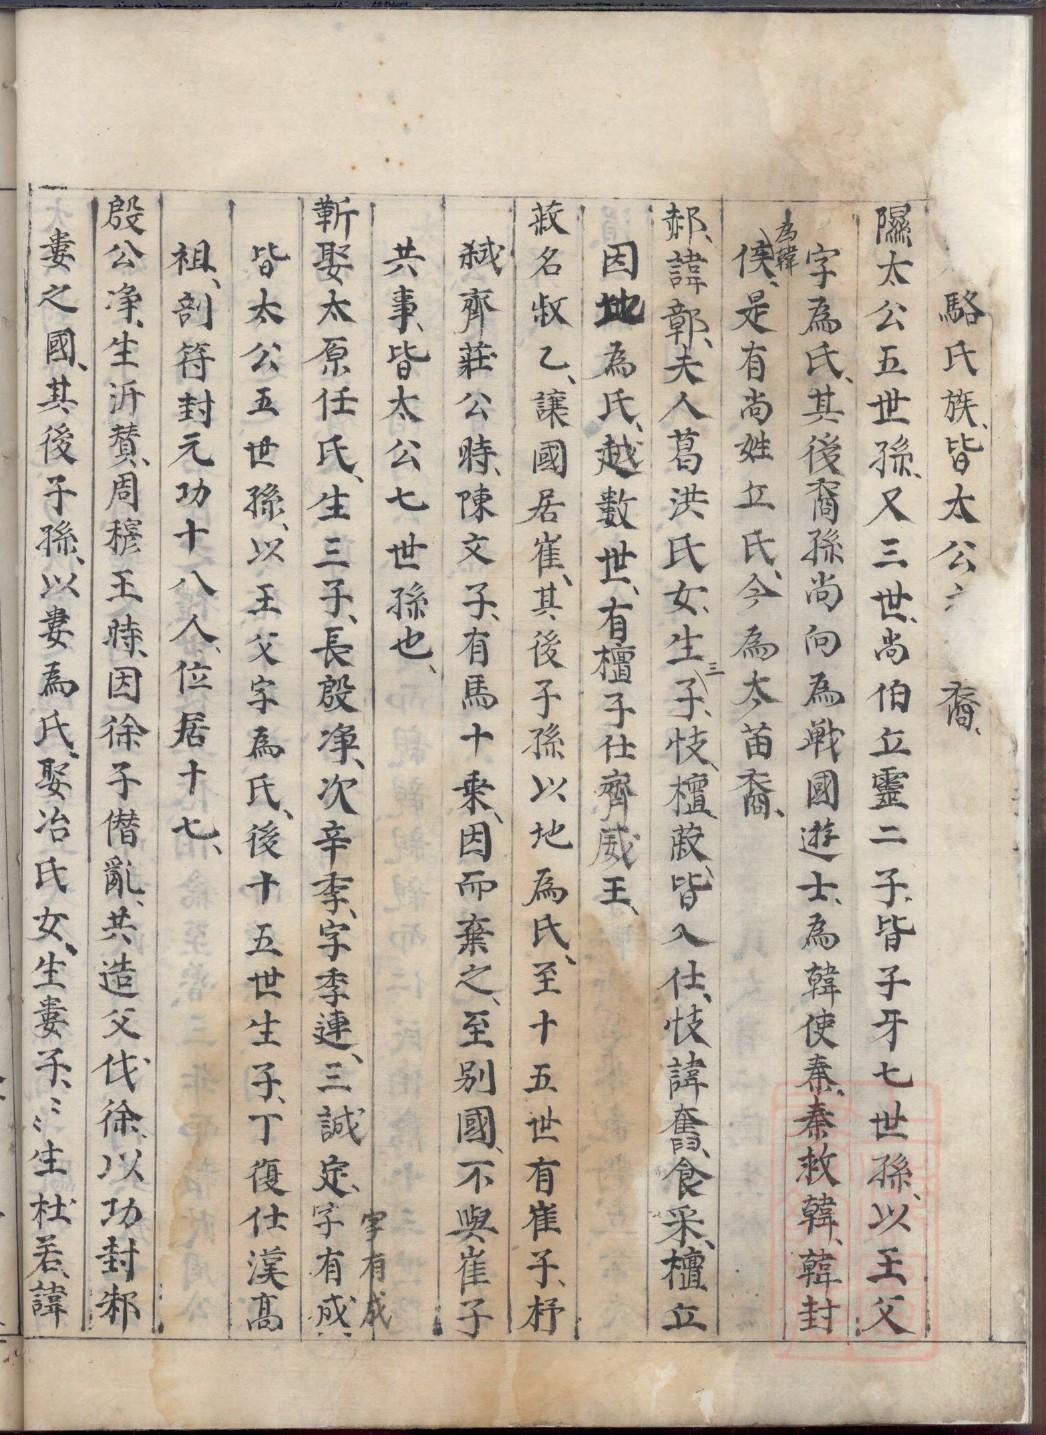 駱氏族、皆太公
裔、
隰太公五世孫、又三世、尚伯立靈二子、皆子牙七世孫、以王父
字為氏、其後裔孫尚向為戰國遊士、為韓使秦、秦救韓、韓封
為韓
侯、是有尚姓立氏、今為太苗裔、
郝、諱郭、夫人葛洪氏女、生三子、忮、檀、蔽、皆入仕、忮諱奮、食采、檀立
因地為氏、越數世、有檀子仕齊威王、
蔽名叔乙、讓國居崔、其後子孫以地為氏、至十五世有崔子、杼
弒齊莊公時、陳文子、有馬十乘、因而棄之、至別國、不與崔子
共事、皆太公七世孫也、
字有成
靳娶太原任氏、生三子、長殷净、次辛李、字季連、三誠定、字有成
皆太公五世孫、以王父字為氏、後十五世生子、丁復仕漢高
祖、剖符封元功十八人、位居十七、
殷公净、生泝賛、周穆王時、因徐子僭亂、共造父伐徐、以功封邾
婁之國、其後子孫、以婁為氏、娶冶氏女、生婁子、〻生杜若、諱